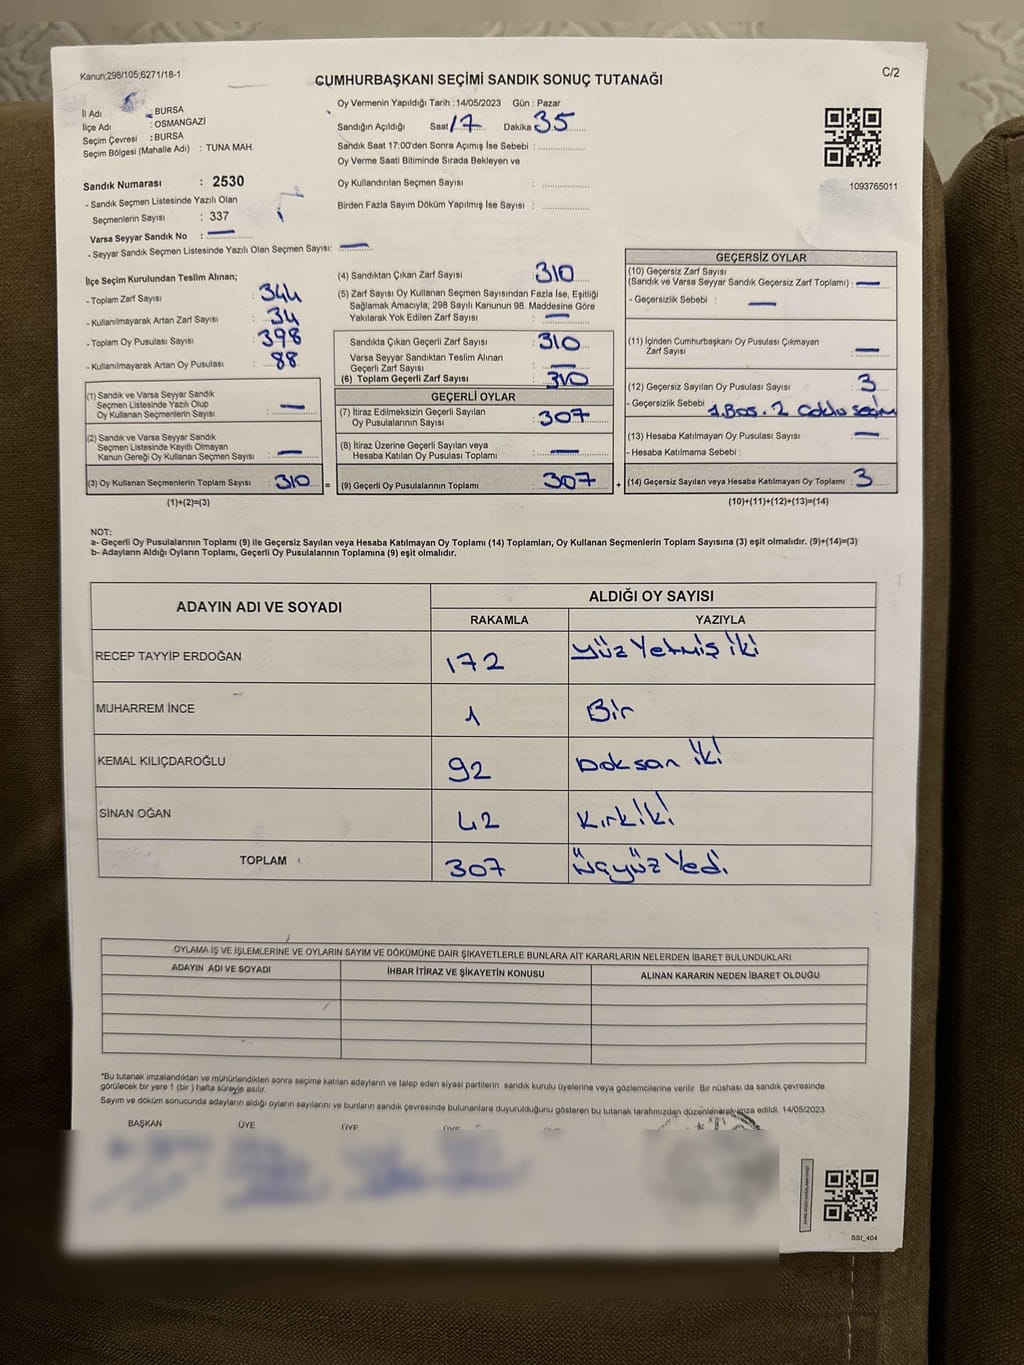 Kanun;298/105;6271/18-1
C/2
CUMHURBAŞKANI SEÇİMİ SANDIK SONUÇ TUTANAĞI
İl Adı : BURSA
İlçe Adı : OSMANGAZİ
Seçim Çevresi : BURSA
Seçim Bölgesi (Mahalle Adı) : TUNA MAH.
Oy Vermenin Yapıldığı Tarih : 14/05/2023 Gün : Pazar
Sandığın Açıldığı Saat 17 Dakika 35
Sandık Saat 17:00'den Sonra Açımış İse Sebebi :
Oy Verme Saati Bitiminde Sırada Bekleyen ve
Oy Kullandırılan Seçmen Sayısı :
Birden Fazla Sayım Döküm Yapılmış İse Sayısı :
1093765011
Sandık Numarası : 2530
- Sandık Seçmen Listesinde Yazılı Olan
Seçmenlerin Sayısı : 337
Varsa Seyyar Sandık No : —
- Seyyar Sandık Seçmen Listesinde Yazılı Olan Seçmen Sayısı: —
İlçe Seçim Kurulundan Teslim Alınan;
- Toplam Zarf Sayısı : 344
- Kullanılmayarak Artan Zarf Sayısı : 34
- Toplam Oy Pusulası Sayısı : 398
- Kullanılmayarak Artan Oy Pusulası : 88
(1) Sandık ve Varsa Seyyar Sandık
Seçmen Listesinde Yazılı Olup
Oy Kullanan Seçmenlerin Sayısı : —
(2) Sandık ve Varsa Seyyar Sandık
Seçmen Listesinde Kayıtlı Olmayan
Kanun Gereği Oy Kullanan Seçmen Sayısı : —
(3) Oy Kullanan Seçmenlerin Toplam Sayısı : 310 =
(1)+(2)=(3)
(4) Sandıktan Çıkan Zarf Sayısı : 310
(5) Zarf Sayısı Oy Kullanan Seçmen Sayısından Fazla İse, Eşitliği
Sağlamak Amacıyla; 298 Sayılı Kanunun 98. Maddesine Göre
Yakılarak Yok Edilen Zarf Sayısı : —
Sandıkta Çıkan Geçerli Zarf Sayısı : 310
Varsa Seyyar Sandıktan Teslim Alınan
Geçerli Zarf Sayısı : —
(6) Toplam Geçerli Zarf Sayısı : 310
GEÇERLİ OYLAR
(7) İtiraz Edilmeksizin Geçerli Sayılan
Oy Pusulalarının Sayısı : 307
(8) İtiraz Üzerine Geçerli Sayılan veya
Hesaba Katılan Oy Pusulası Toplamı : —
(9) Geçerli Oy Pusulalarının Toplamı : 307 +
GEÇERSİZ OYLAR
(10) Geçersiz Zarf Sayısı
(Sandık ve Varsa Seyyar Sandık Geçersiz Zarf Toplamı) : —
- Geçersizlik Sebebi : —
(11) İçinden Cumhurbaşkanı Oy Pusulası Çıkmayan
Zarf Sayısı : —
(12) Geçersiz Sayılan Oy Pusulası Sayısı : 3
- Geçersizlik Sebebi 1.Boş. 2 Çoklu seçim
(13) Hesaba Katılmayan Oy Pusulası Sayısı : —
- Hesaba Katılmama Sebebi :
(14) Geçersiz Sayılan veya Hesaba Katılmayan Oy Toplamı : 3
(10)+(11)+(12)+(13)=(14)
NOT:
a- Geçerli Oy Pusulalarının Toplamı (9) ile Geçersiz Sayılan veya Hesaba Katılmayan Oy Toplamı (14) Toplamları, Oy Kullanan Seçmenlerin Toplam Sayısına (3) eşit olmalıdır. (9)+(14)=(3)
b- Adayların Aldığı Oyların Toplamı, Geçerli Oy Pusulalarının Toplamına (9) eşit olmalıdır.
ADAYIN ADI VE SOYADI
ALDIĞI OY SAYISI
RAKAMLA YAZIYLA
RECEP TAYYİP ERDOĞAN 172 Yüz Yetmiş iki
MUHARREM İNCE 1 Bir
KEMAL KILIÇDAROĞLU 92 Doksan iki
SİNAN OĞAN 42 Kırk iki
TOPLAM 307 Üçyüz Yedi
OYLAMA İŞ VE İŞLEMLERİNE VE OYLARIN SAYIM VE DÖKÜMÜNE DAİR ŞİKAYETLERLE BUNLARA AİT KARARLARIN NELERDEN İBARET BULUNDUKLARI
ADAYIN ADI VE SOYADI İHBAR İTİRAZ VE ŞİKAYETİN KONUSU ALINAN KARARIN NEDEN İBARET OLDUĞU
*Bu tutanak imzalandıktan ve mühürlendikten sonra seçime katılan adayların ve talep eden siyasi partilerin sandık kurulu üyelerine veya gözlemcilerine verilir. Bir nüshası da sandık çevresinde
görülecek bir yere 1 (bir) hafta süreyle asılır.
Sayım ve döküm sonucunda adayların aldığı oyların sayılarını ve bunların sandık çevresinde bulunanlara duyurulduğunu gösteren bu tutanak tarafımızdan düzenlenerek imza edildi. 14/05/2023
BAŞKAN ÜYE ÜYE ÜYE
SSI_404